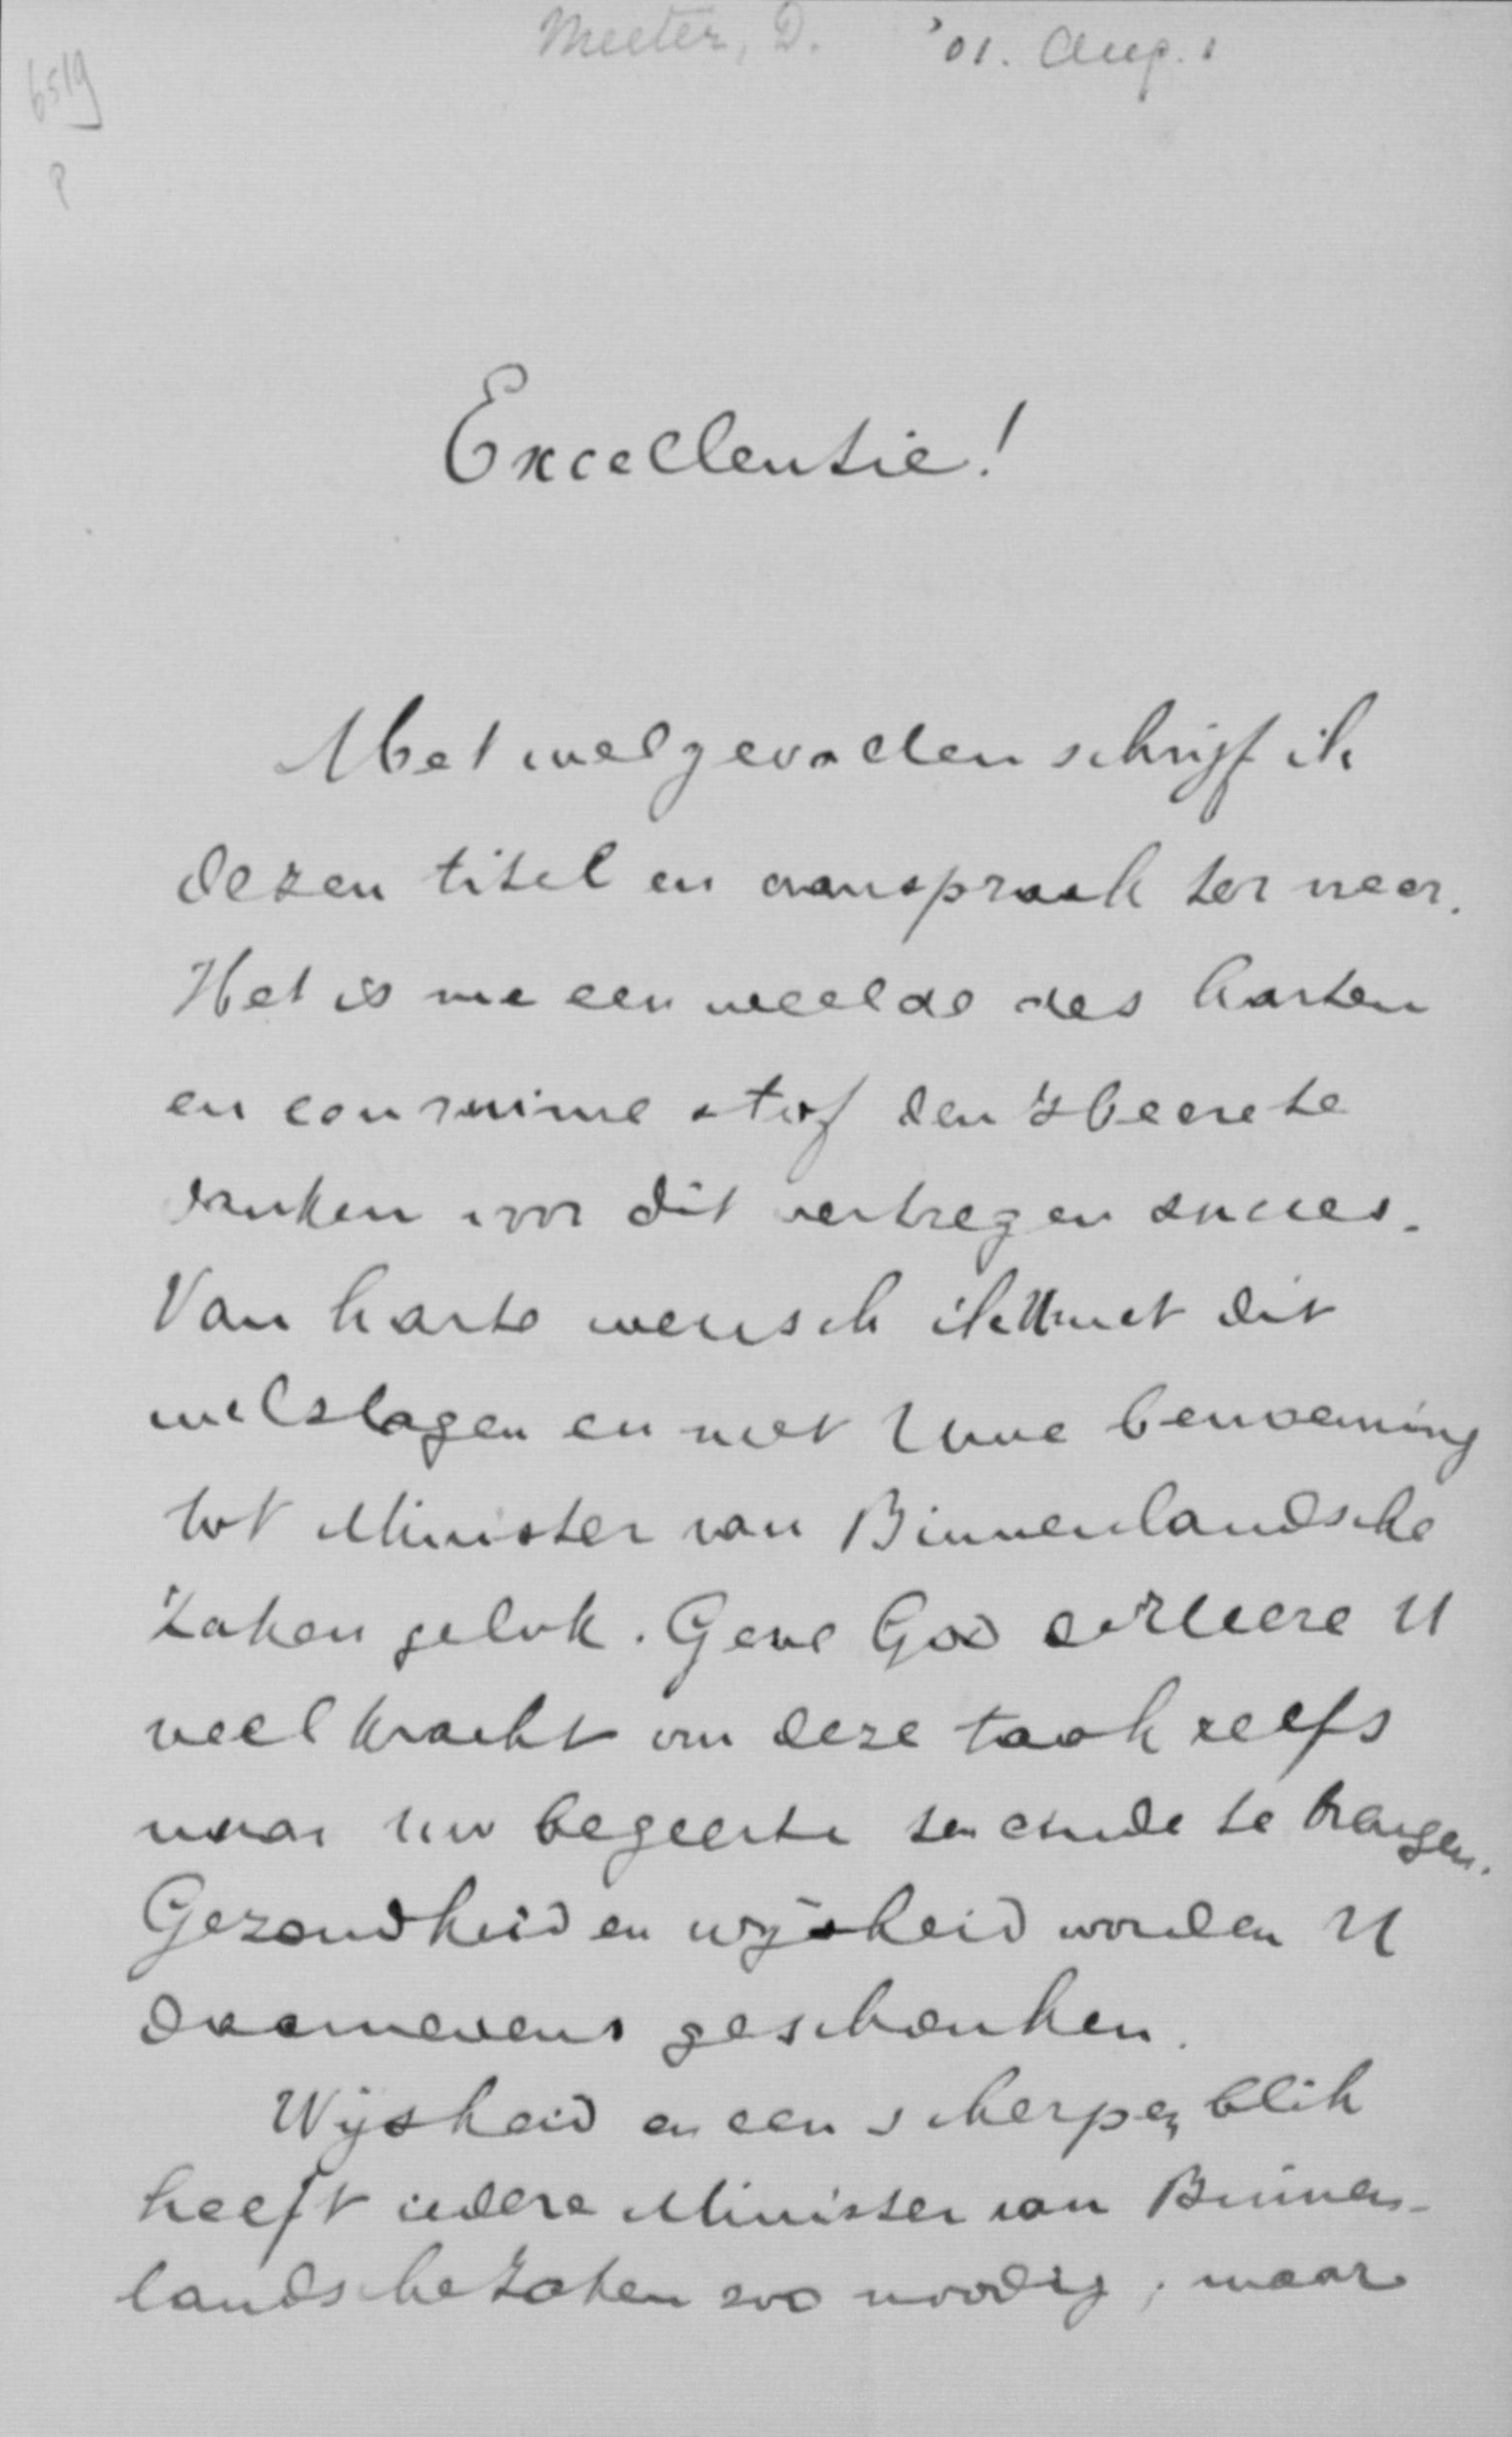 Meeter, D. '01. Aug. 1
6519
P
Excellentie!
Met welgevallen schrijf ik
dezen titel en aanspraak ter neer.
Het is me een weelde des harten
en een ruime stof den Heere te
danken voor dit verkregen succes.
Van harte wensch ik U met dit
welslagen en met Uwe benoeming
tot Minister van Binnenlandsche
Zaken geluk. Geve God Heere U
veel kracht om deze taak zelfs
naar uw begeerte ten einde te brengen.
Gezondheid en wijsheid worden U
daarnevens geschonken.
Wijsheid en een scherpen blik
heeft iedere Minister van Binnen-
landsche Zaken zoo noodig, maar